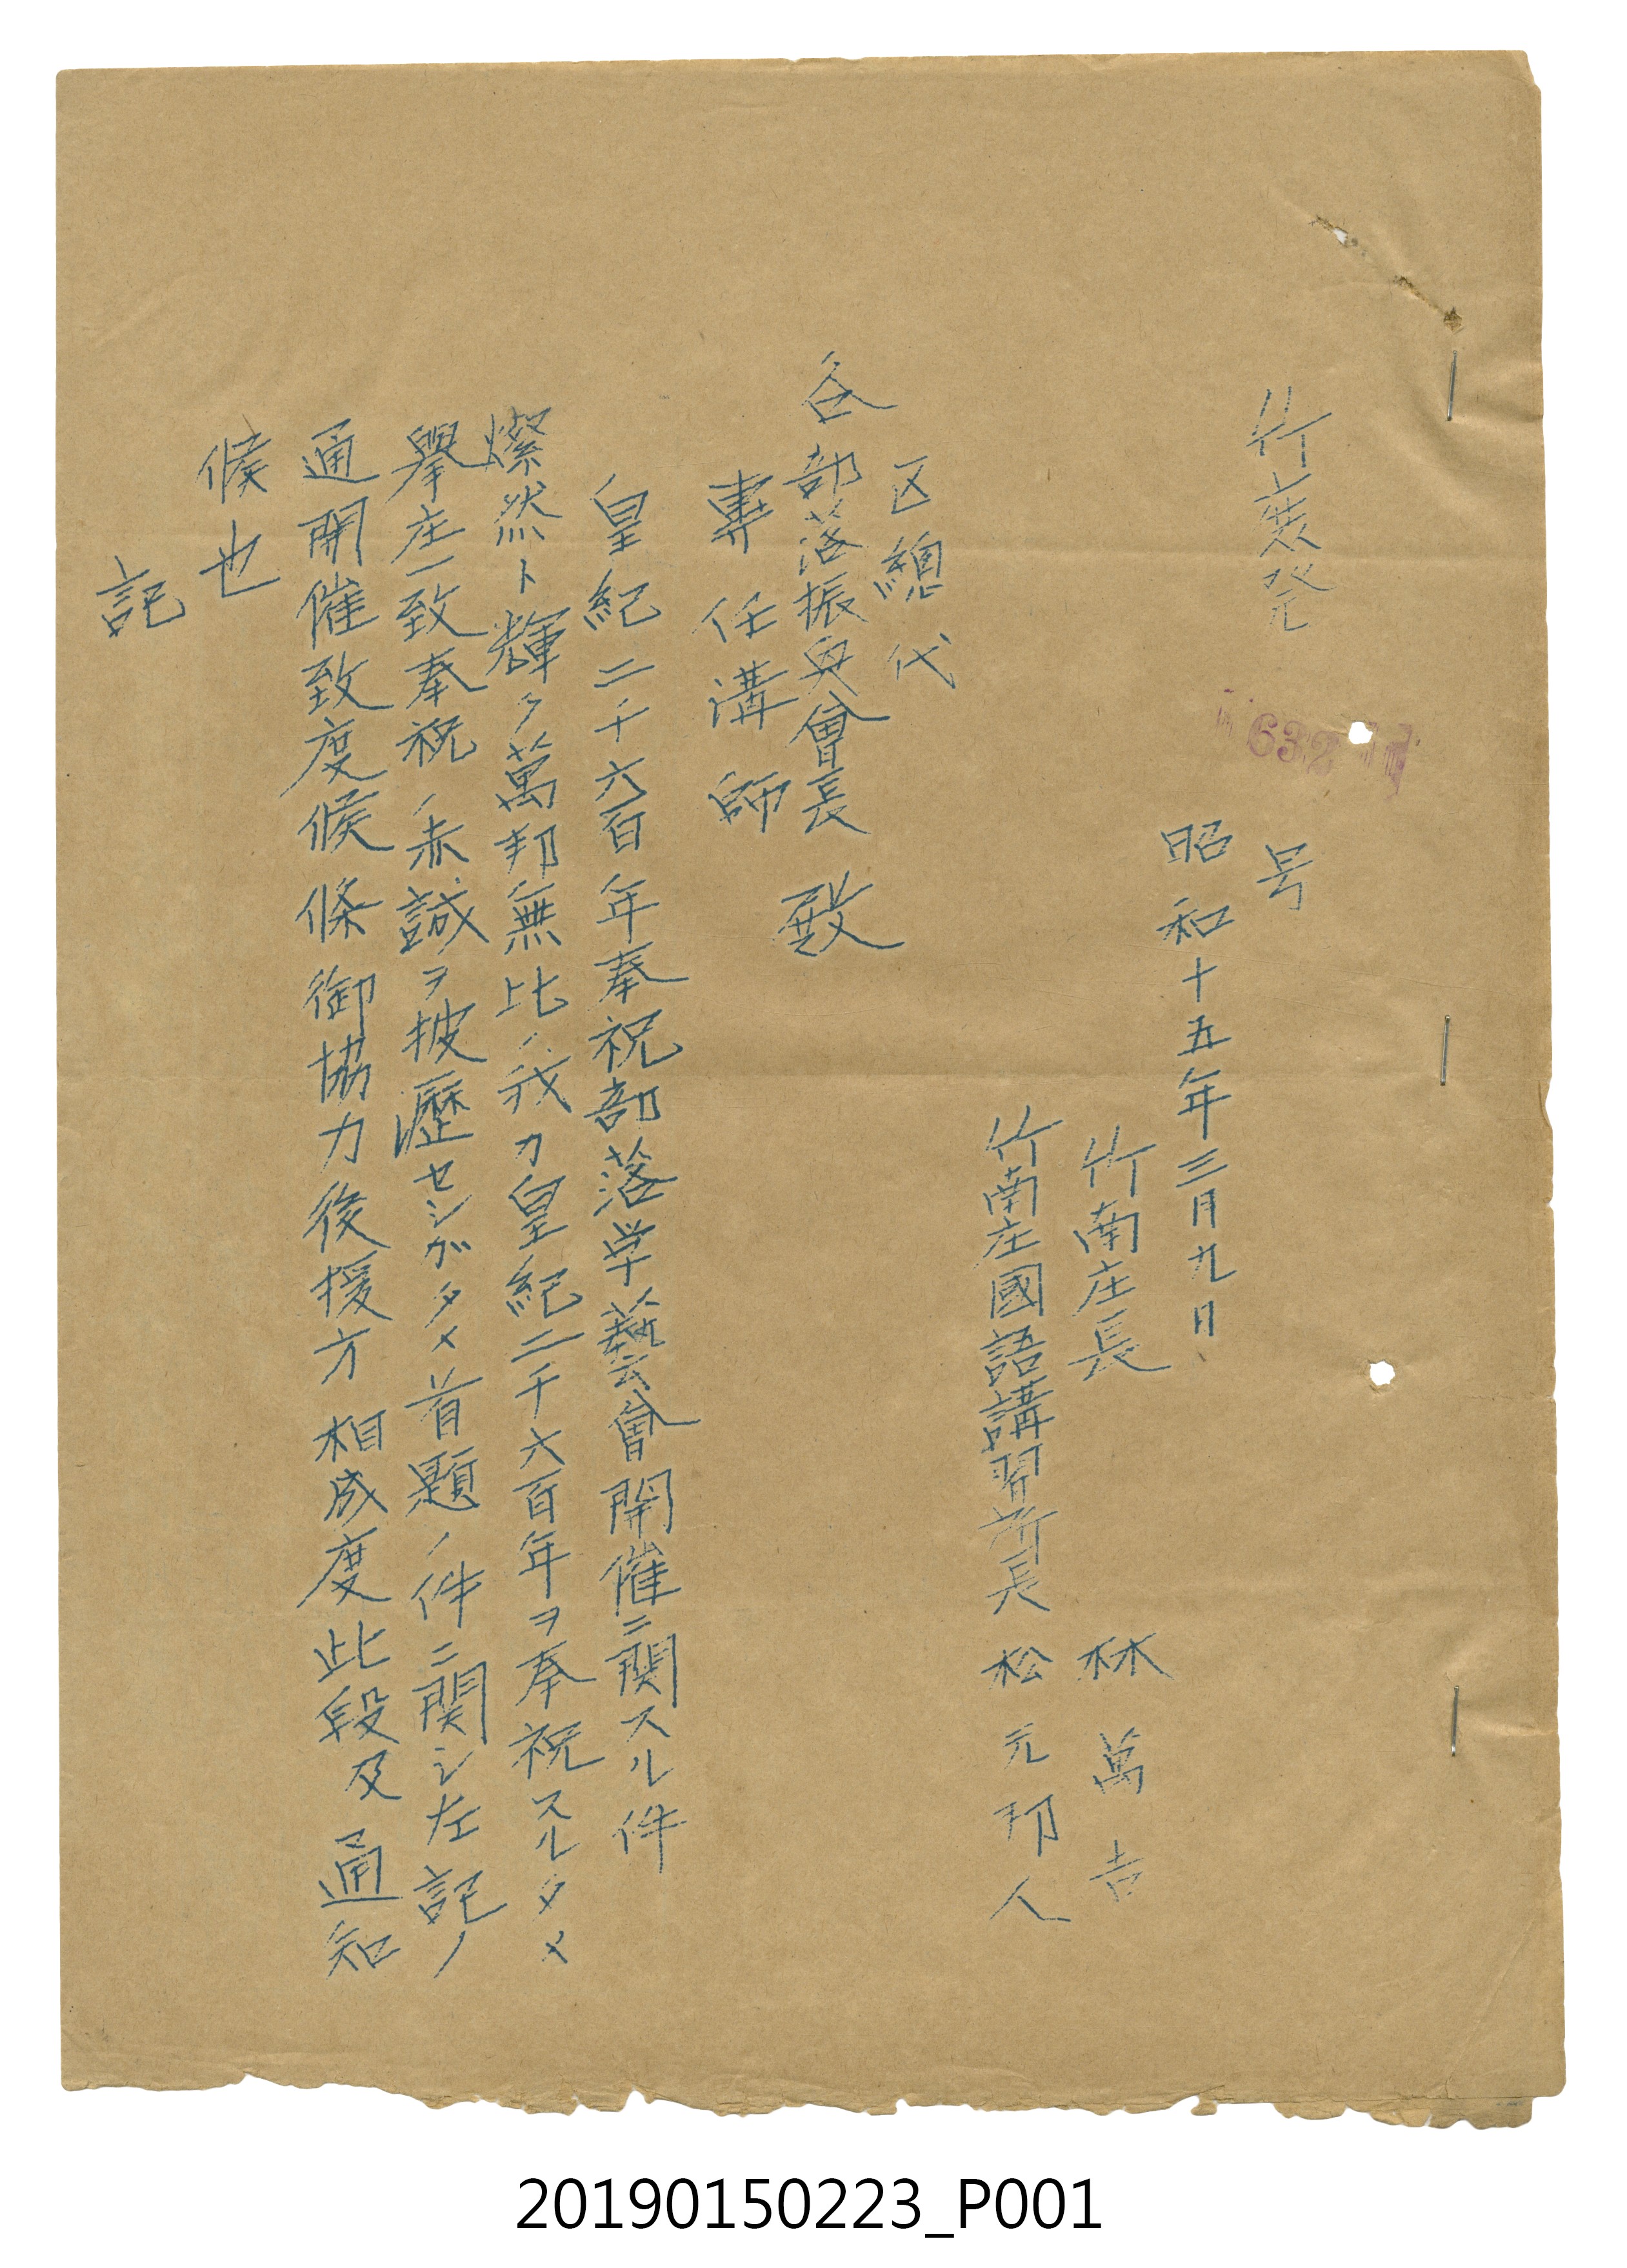 竹庶発 632 号
昭和十五年三月九日
竹南庄長 林萬吉
竹南庄國語講習所長 松元邦人
区總代
各部落振興會長 殿
專任溝師
皇紀二千六百年奉祝部落学藝會開催ニ関スル件
燦然ト輝ク萬邦無比ノ我カ皇紀二千六百年ヲ奉祝スルタメ
擧庄一致奉祝ノ赤誠ヲ披瀝センガタメ首題ノ件ニ関シ左記ノ
通開催致度候條御協力後援方相成度此段及通知
候也
記
20190150223_P001